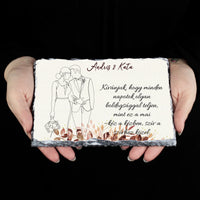 András & Kata
Kívánjuk, hogy minden
napotok olyan
boldogsággal teljen,
mint ez a mai
-kéz a kézben, szív a
szívhez közel.